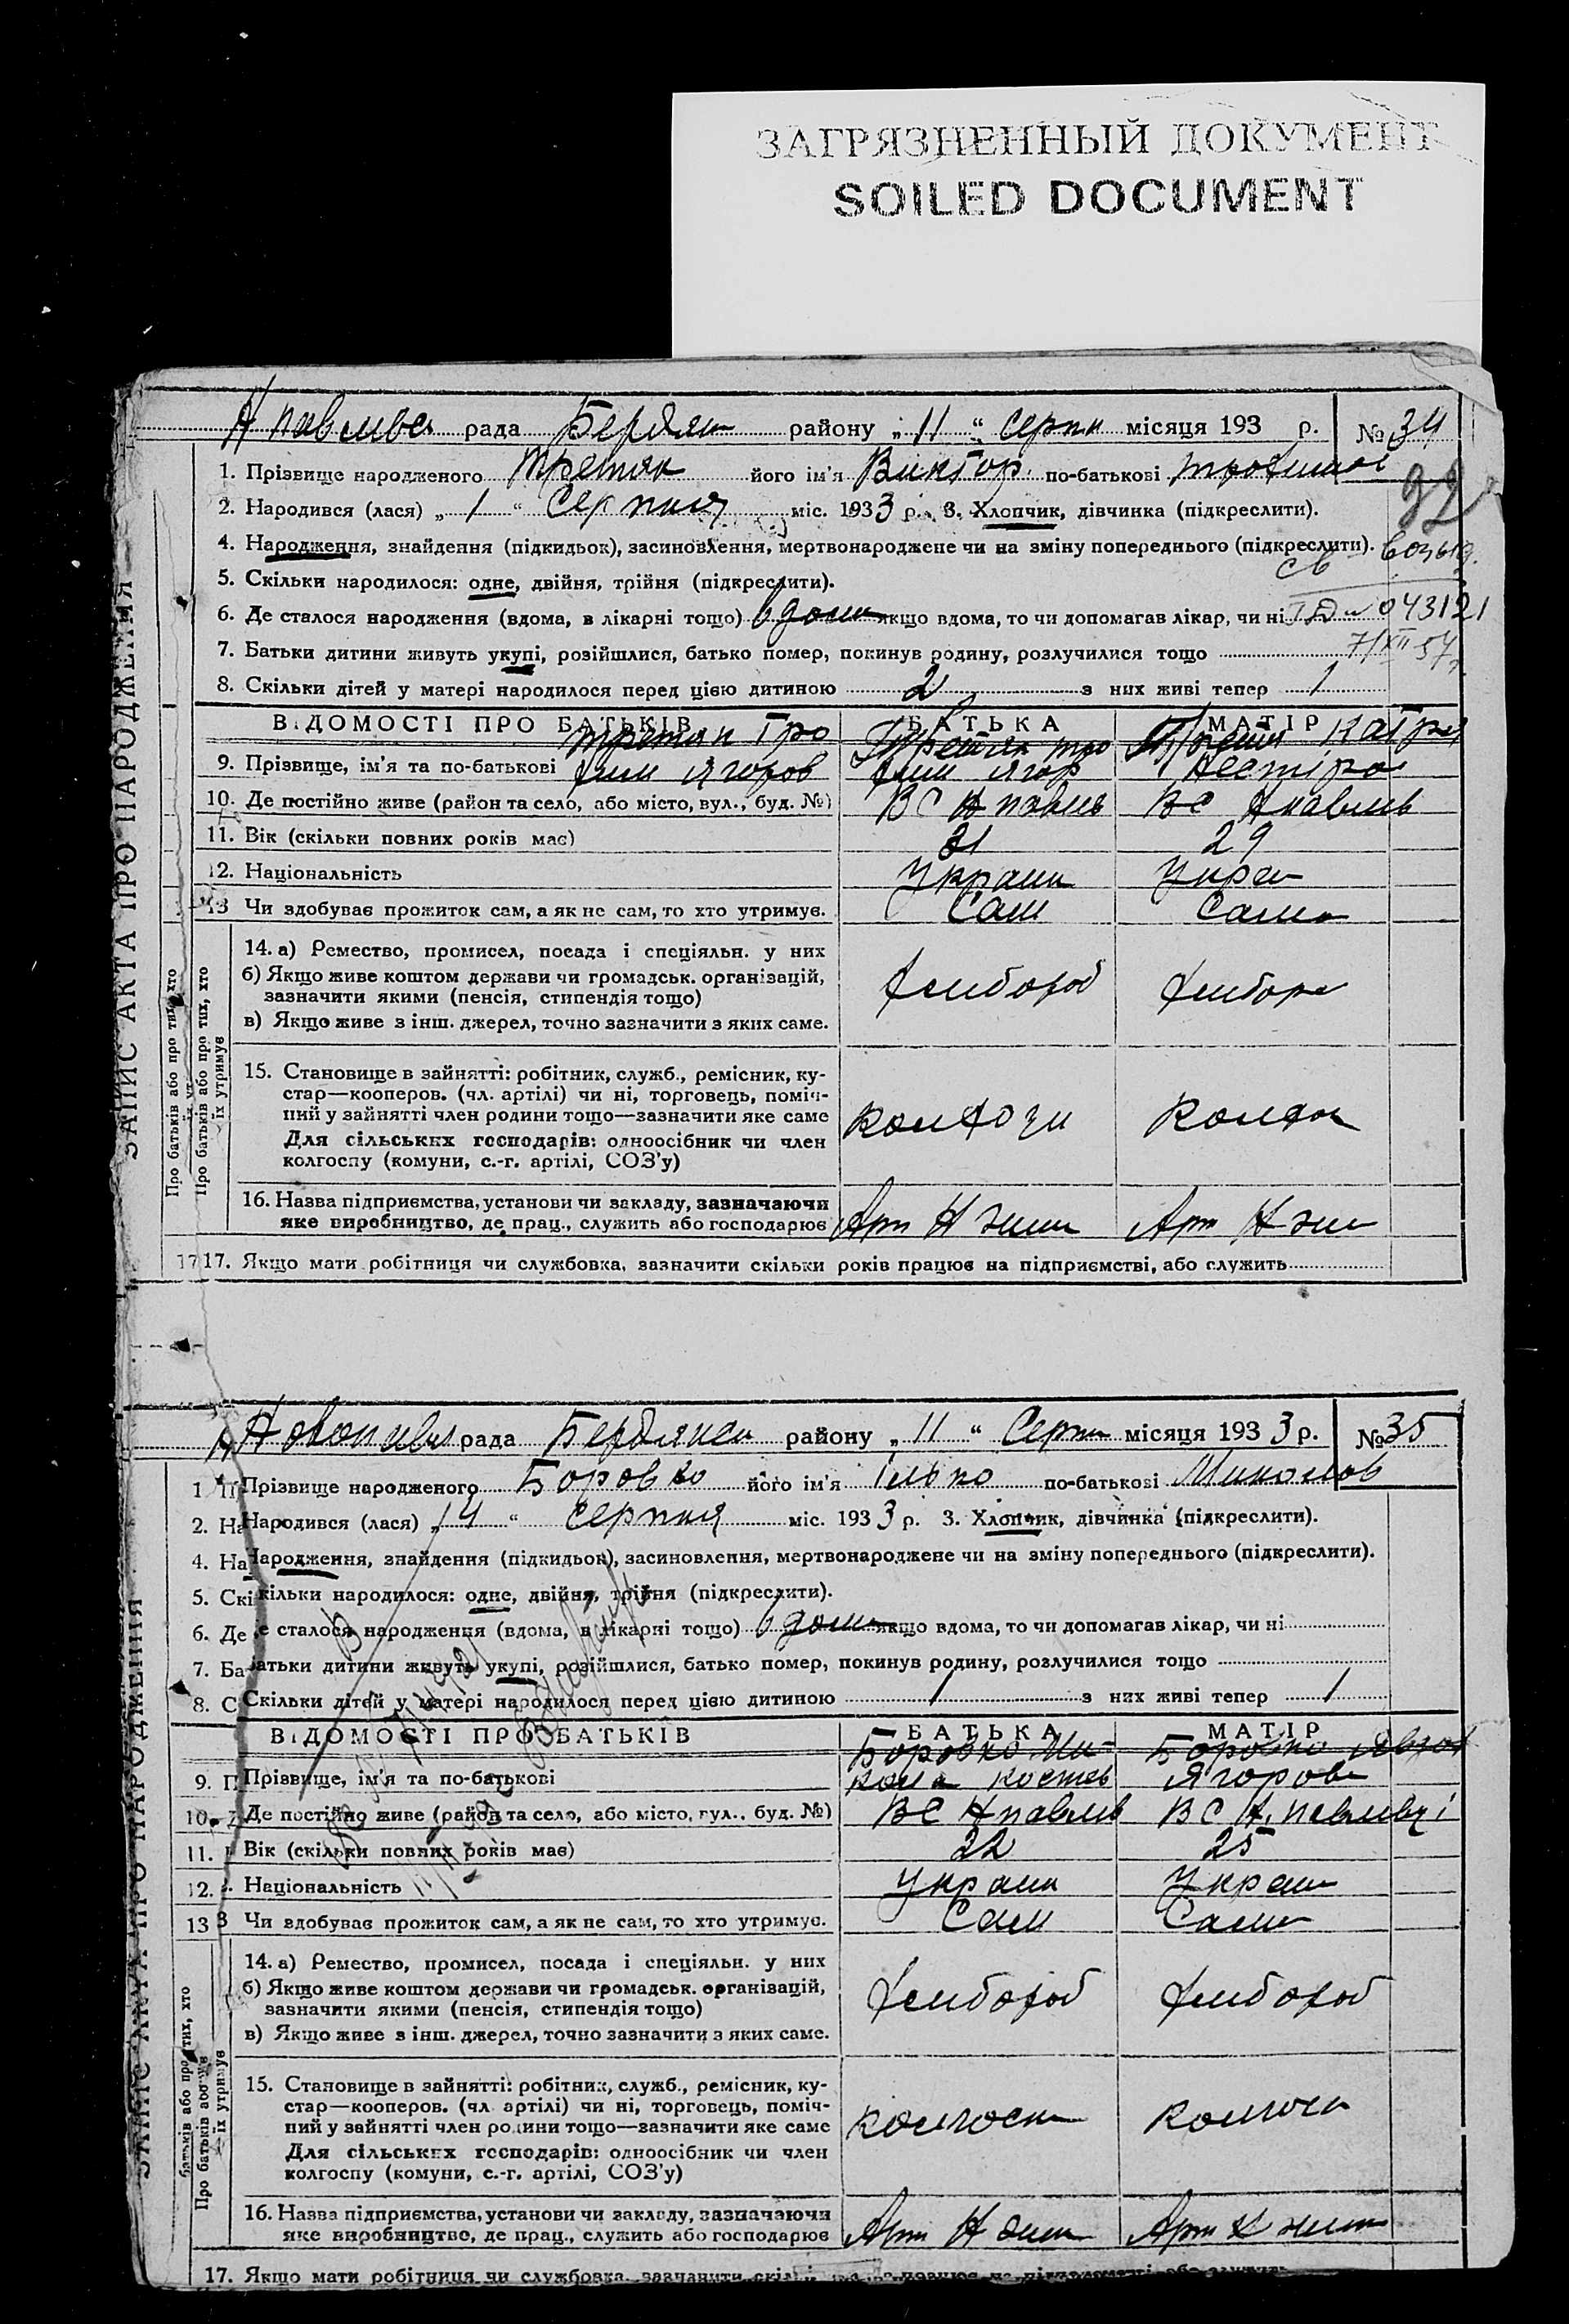 ЗАГРЯЗНЕННЫЙ ДОКУМЕНТ
SOILED DOCUMENT
рада Бердян району „ 11 “ серпн місяця 193 р. № 34
1. Прізвище народженого Третяк його ім'я Виктор по-батькові
2. Народився (лася) „ 1 “ Серпня міс. 1933 р. 3. Хлопчик, дівчинка (підкреслити).
4. Народження, знайдення (підкидьок), засиновлення, мертвонароджене чи на зміну попереднього (підкреслити).
5. Скільки народилося: одне, двійня, трійня (підкреслити).
6. Де сталося народження (вдома, в лікарні тощо) вдома якщо вдома, то чи допомагав лікар, чи ні 043121
7. Батьки дитини живуть укупі, розійшлися, батько помер, покинув родину, розлучилися тощо 7/XII 57
8. Скільки дітей у матері народилося перед цією дитиною 2 з них живі тепер 1
ВІДОМОСТІ ПРО БАТЬКІВ БАТЬКА МАТІР
Третяк Тро Третяк тро Катря
9. Прізвище, ім'я та по-батькові фим Ягоров фим Ягор Нестіро
10. Де постійно живе (район та село, або місто, вул., буд. №) ВС Н павлів ВС Н павлів
11. Вік (скільки повних років має) 31 29
12. Національність Україн Укра
13 Чи здобуває прожиток сам, а як не сам, то хто утримує. Сам Сама
14. а) Ремество, промисел, посада і спеціяльн. у них
б) Якщо живе коштом держави чи громадськ. організацій,
зазначити якими (пенсія, стипендія тощо)
в) Якщо живе з інш. джерел, точно зазначити з яких саме.
15. Становище в зайнятті: робітник, служб., ремісник, ку-
стар—кооперов. (чл. артілі) чи ні, торговець, поміч-
ний у зайнятті член родини тощо—зазначити яке саме
Для сільських господарів: одноосібник чи член
колгоспу (комуни, с.-г. артілі, СОЗ'у)
16. Назва підприємства, установи чи закладу, зазначаючи
яке виробництво, де прац., служить або господарює Арт Н жит Арт Н жит
17. Якщо мати робітниця чи службовка, зазначити скільки років працює на підприємстві, або служить
ЗАПИС АКТА ПРО НАРОДЖЕННЯ
Про батьків або про тих, хто
їх утримує
Новопавл рада Бердянск району „ 11 “ Серпн місяця 1933 р. № 35
1. Прізвище народженого Боровко його ім'я Ілько по-батькові Миколов
2. Народився (лася) „ 4 “ серпня міс. 1933 р. 3. Хлопчик, дівчинка (підкреслити).
4. Народження, знайдення (підкидьок), засиновлення, мертвонароджене чи на зміну попереднього (підкреслити).
5. Скільки народилося: одне, двійня, трійня (підкреслити).
6. Де сталося народження (вдома, в лікарні тощо) вдома якщо вдома, то чи допомагав лікар, чи ні
7. Батьки дитини живуть укупі, розійшлися, батько помер, покинув родину, розлучилися тощо
8. Скільки дітей у матері народилося перед цією дитиною 1 з них живі тепер 1
ВІДОМОСТІ ПРО БАТЬКІВ БАТЬКА МАТІР
Боровко Ми- Боровко
9. Прізвище, ім'я та по-батькові кола Костев Ягоров
10. Де постійно живе (район та село, або місто, вул., буд. №) ВС Н павлів ВС Н. павлівці
11. Вік (скільки повних років має) 22 25
12. Національність Україн Україн
13 Чи здобуває прожиток сам, а як не сам, то хто утримує. Сам Сама
14. а) Ремество, промисел, посада і спеціяльн. у них
б) Якщо живе коштом держави чи громадськ. організацій,
зазначити якими (пенсія, стипендія тощо)
в) Якщо живе з інш. джерел, точно зазначити з яких саме.
15. Становище в зайнятті: робітник, служб., ремісник, ку-
стар—кооперов. (чл. артілі) чи ні, торговець, поміч-
ний у зайнятті член родини тощо—зазначити яке саме колгосп колгосп
Для сільських господарів: одноосібник чи член
колгоспу (комуни, с.-г. артілі, СОЗ'у)
16. Назва підприємства, установи чи закладу, зазначаючи
яке виробництво, де прац., служить або господарює Арт Н жит Арт Н жит
17. Якщо мати робітниця чи службовка, зазначити
ЗАПИС АКТА ПРО НАРОДЖЕННЯ
Про батьків або
їх утримує